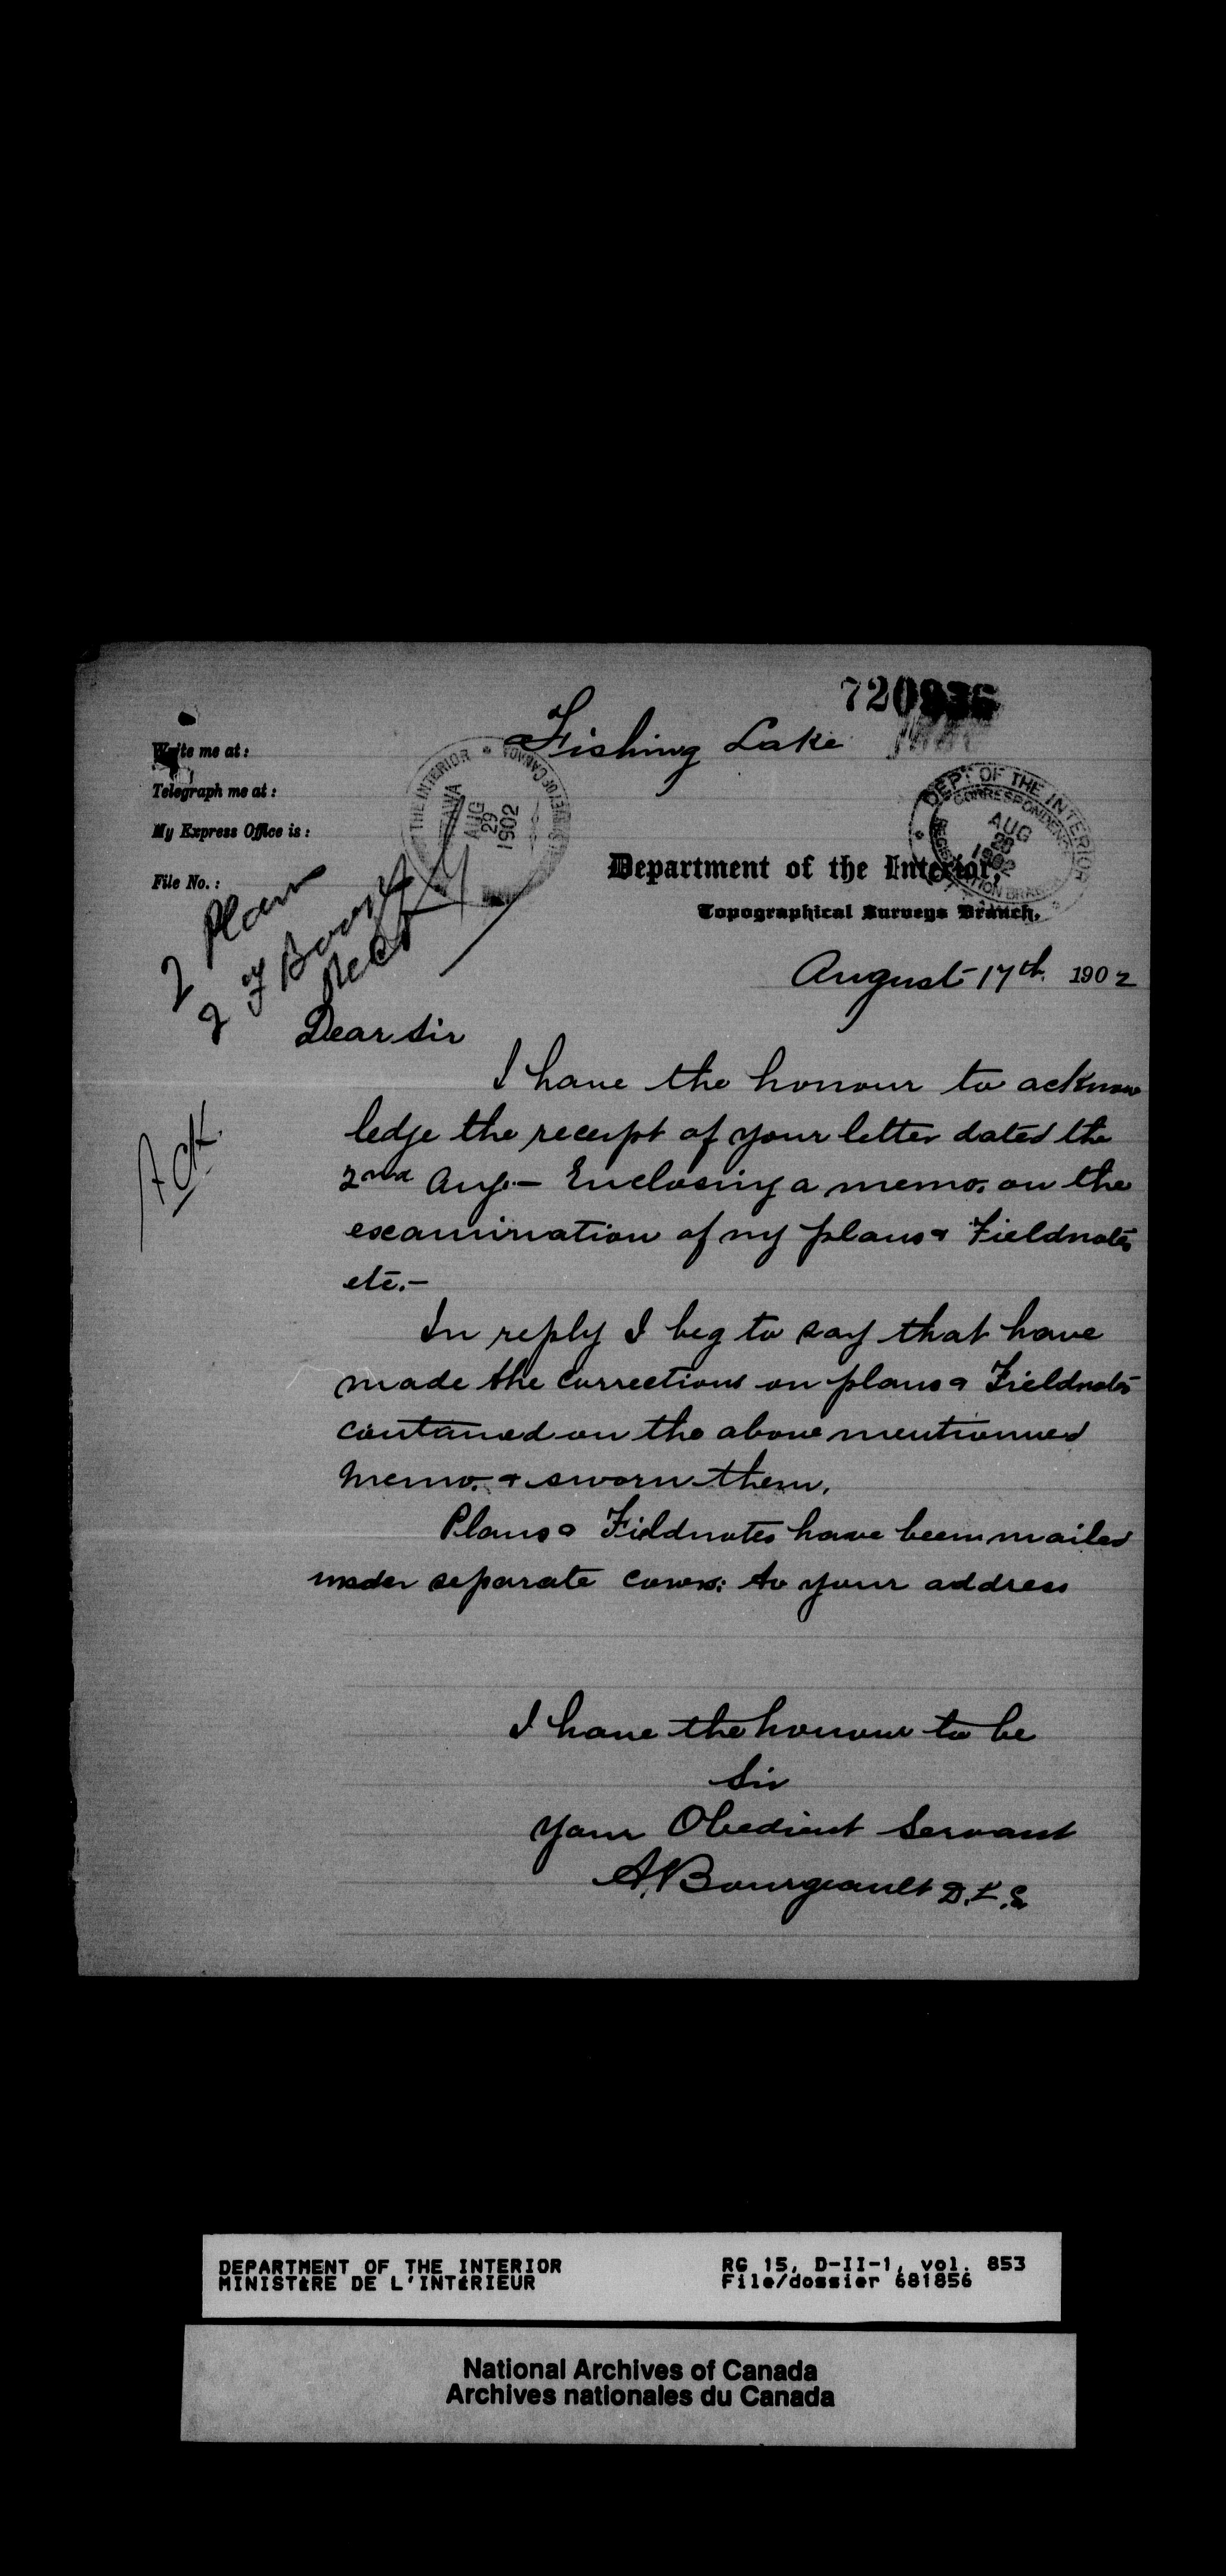 720936
Fishing Lake
Write me at:
Telegraph me at:
My Express Office is:
File No.:
THE INTERIOR
AUG
29
1902
DEPT OF THE INTERIOR
CORRESPONDENCE
AUG
28
1902
Department of the Interior,
Topographical Surveys Branch,
2 Plans
2
Recd
August 17th. 1902
Dear Sir
Ack
I have the honour to acknow
ledge the receipt of your letter dated the
2nd Aug.– Enclosing a memo. on the
examination of my plans & Fieldnotes
etc.–
In reply I beg to say that have
made the corrections on plans & Fieldnotes
contained on the above mentionned
memo. & sworn them.
Plans & Fieldnotes have been mailed
under separate cover: to your address
I have the honour to be
Sir
Your Obedient Servant
A. Bourgeault D.L.S.
DEPARTMENT OF THE INTERIOR
MINISTÈRE DE L'INTÉRIEUR
RG 15, D-II-1, vol. 853
File/dossier 681856
National Archives of Canada
Archives nationales du Canada